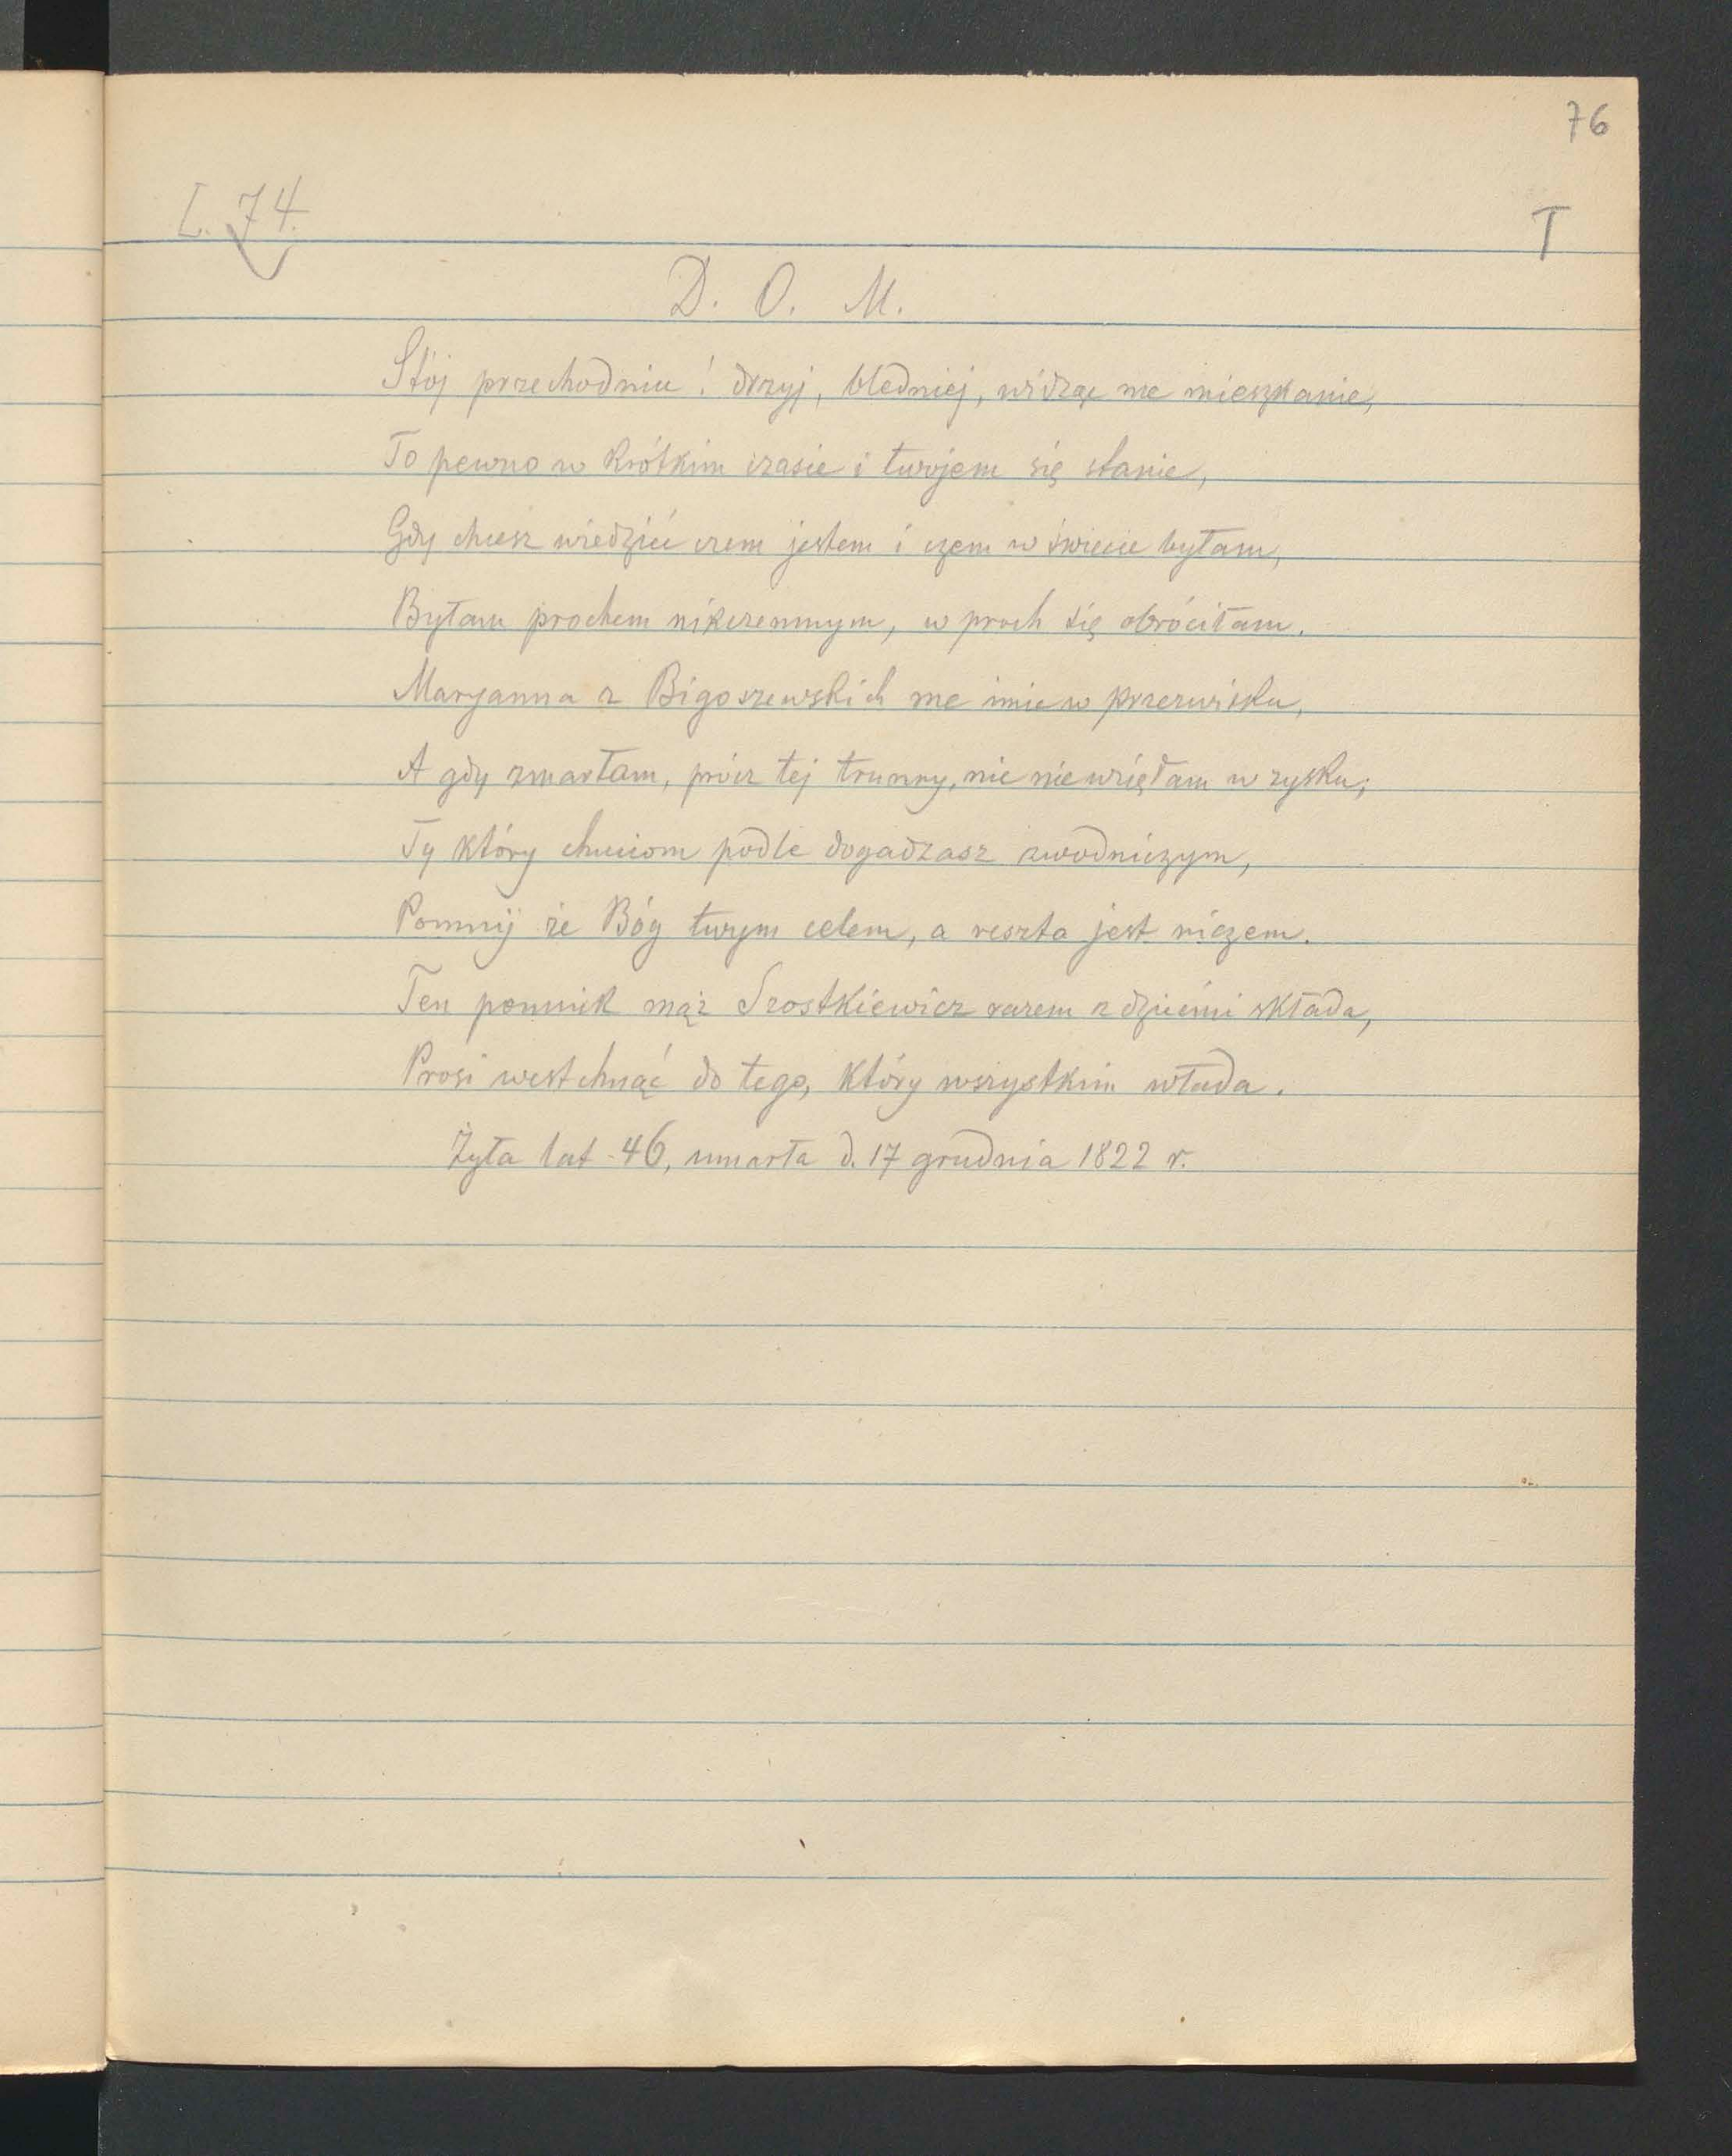 76
L. 74.
T
D. O. M.
Stój przechodniu! drzyj, bledniej, widząc me mieszkanie,
To pewno w krótkim czasie i twojem się stanie,
Gdy chcesz wiedzieć czem jestem i czem w świecie byłam,
Byłam prochem nikczemnym, w proch się obróciłam.
Maryanna z Bigoszewskich me imie w przezwisku,
A gdy zmarłam, prócz tej trunny, nic nie wzięłam w zysku;
Ty który chuciom podle dogadzasz zwodniczym,
Pomnij że Bóg twym celem, a reszta jest niczem.
Ten pomnik mąż Szostkiewicz razem z dziećmi składa,
Prosi westchnąć do tego, który wszystkim włada.
Żyła lat 46, umarła d. 17 grudnia 1822 r.